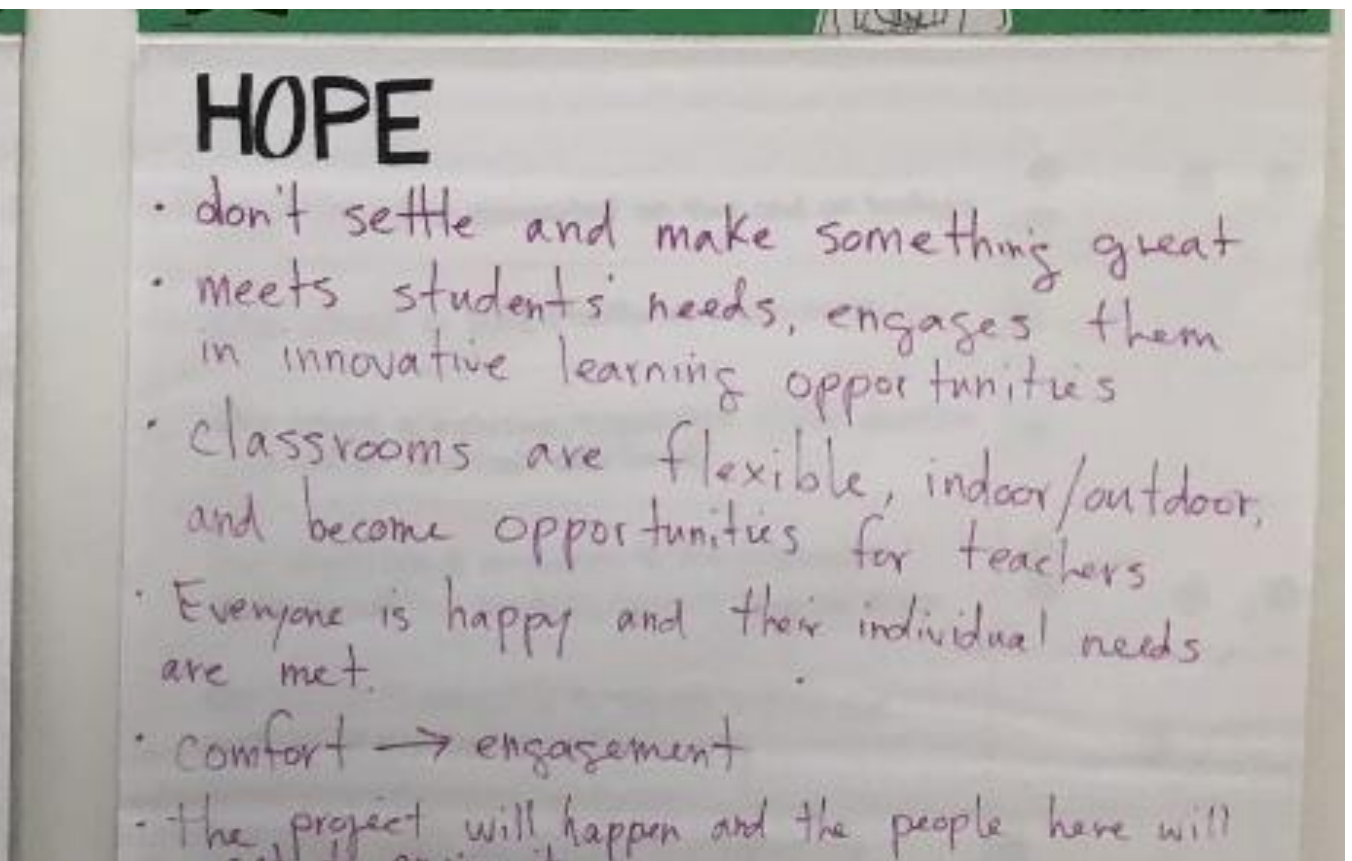 HOPE
• don't settle and make something great
• meets students' needs, engages them
in innovative learning opportunities
• classrooms are flexible, indoor/outdoor,
and become opportunities for teachers
• Everyone is happy and their individual needs
are met.
• comfort → engagement
• the project will happen and the people here will